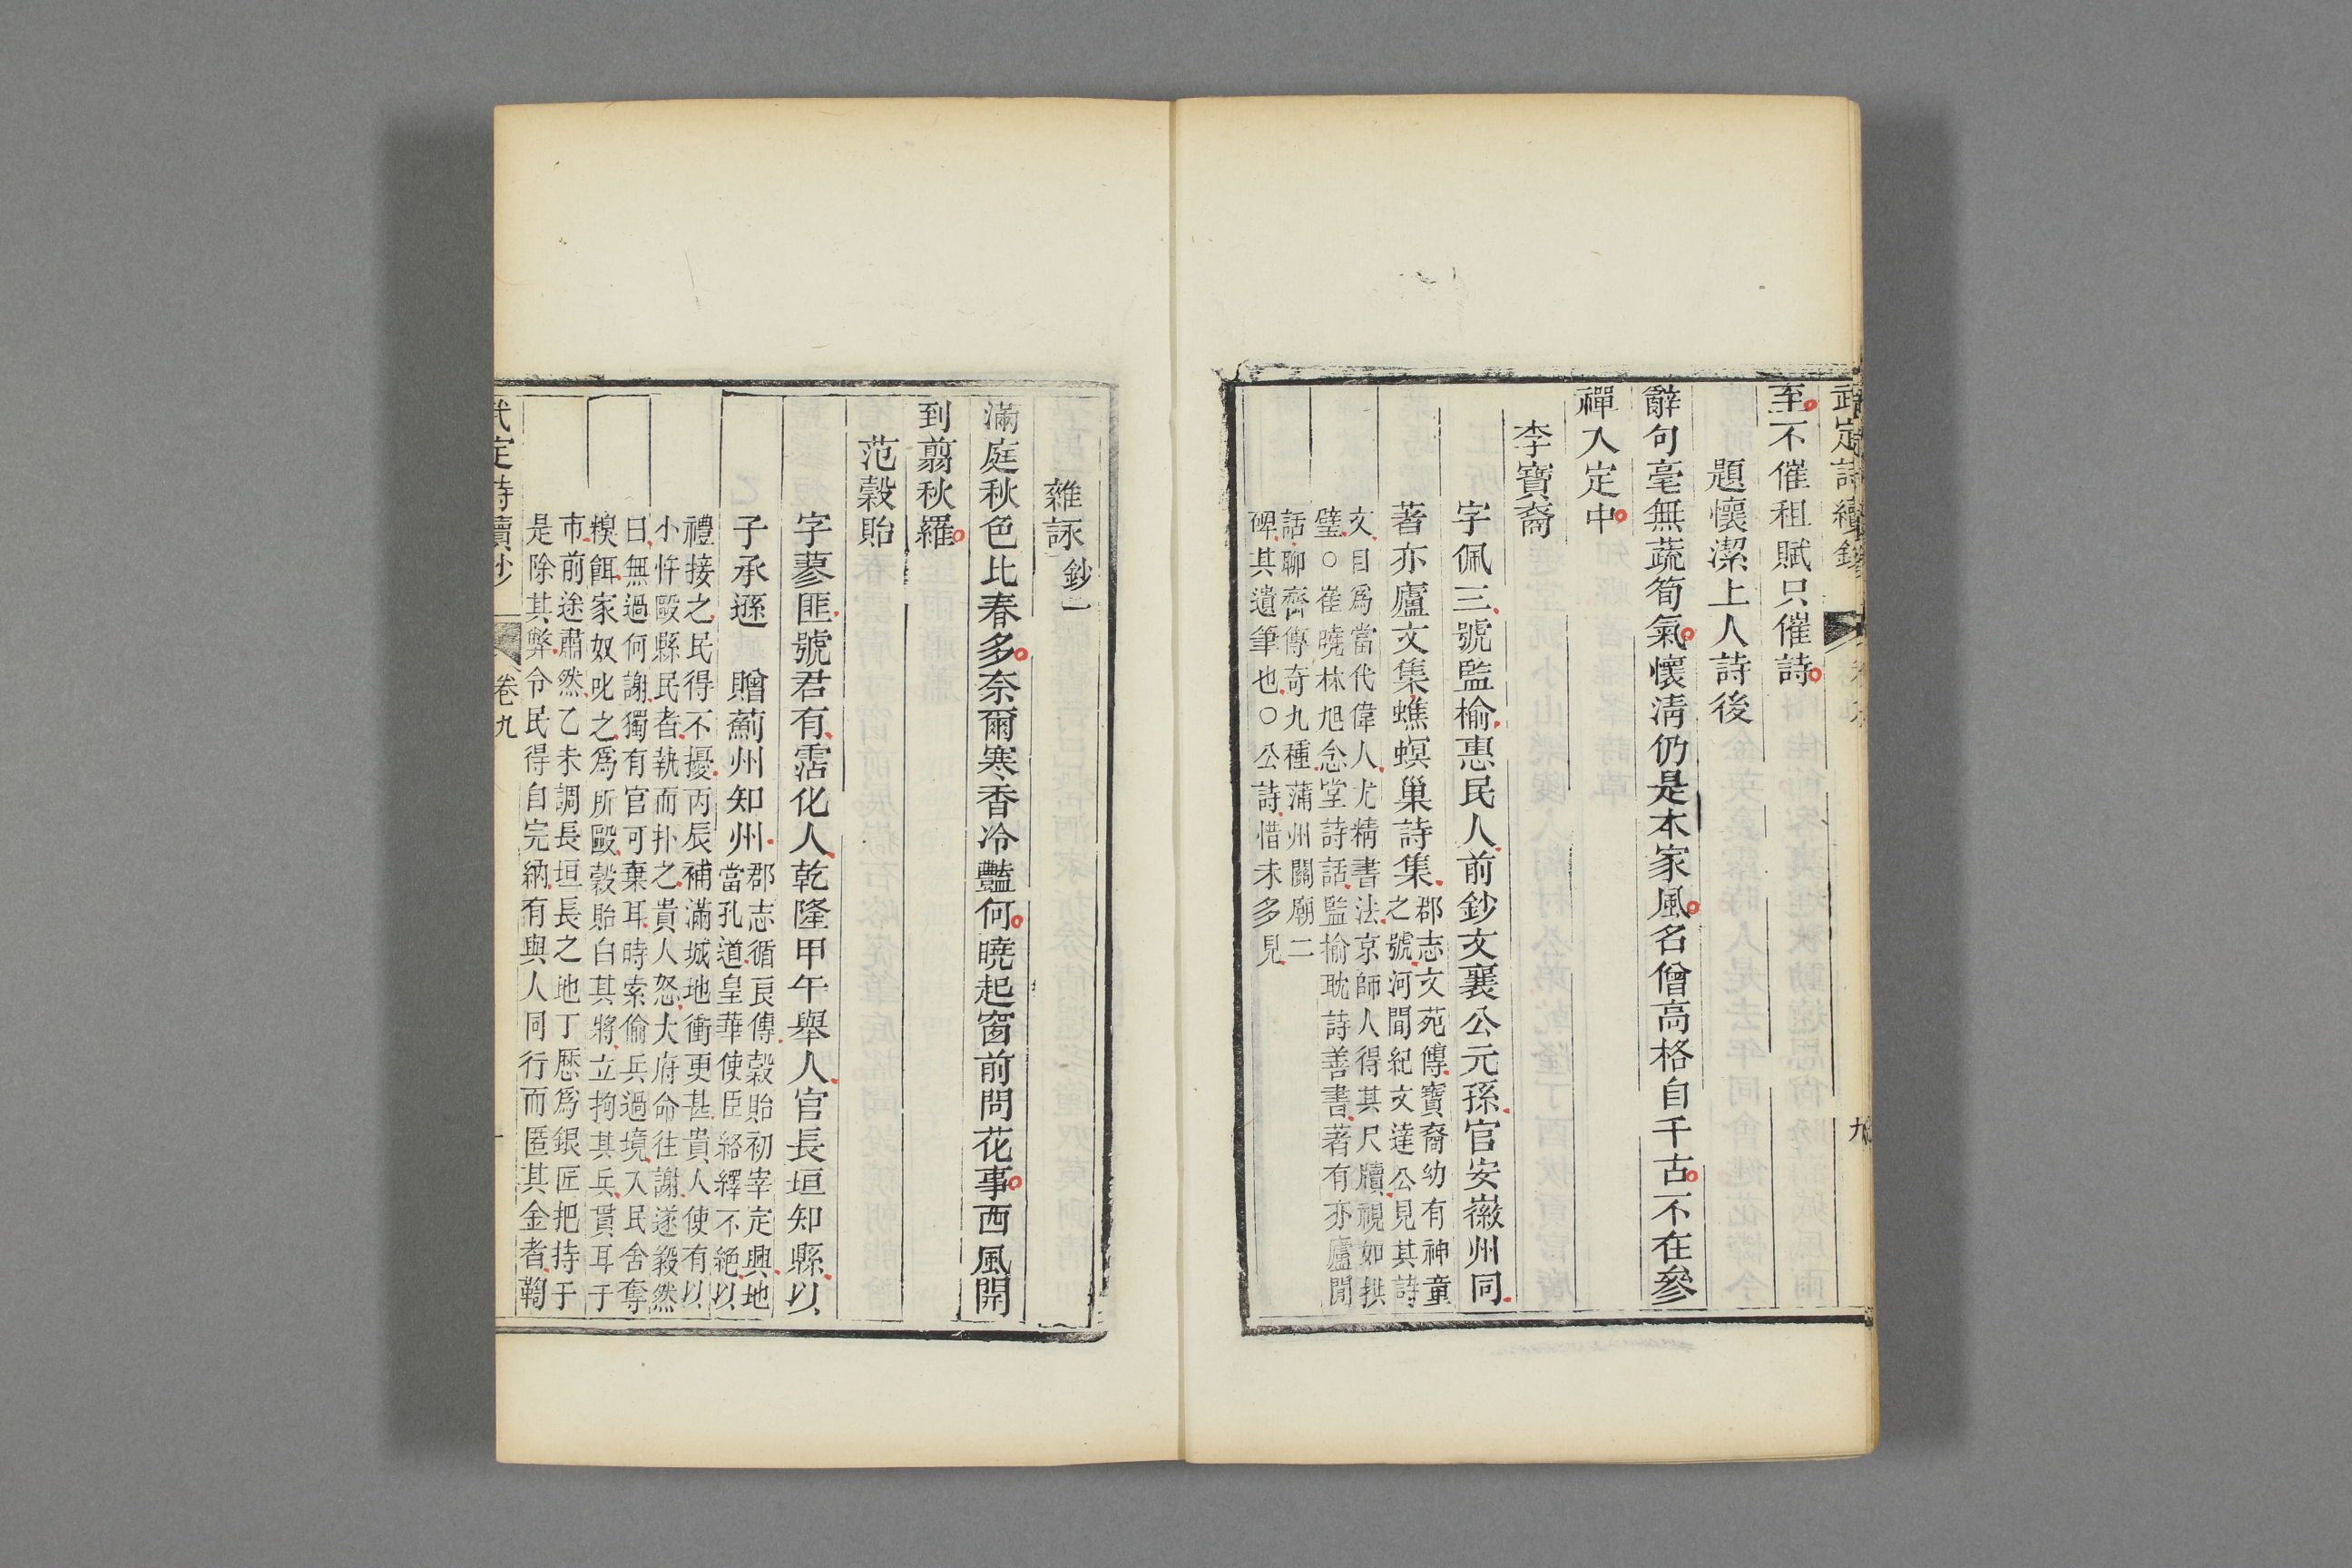 武定詩續鈔 九
至不催租賦只催詩
題懷潔上人詩後
辭句毫無蔬筍氣懷清仍是本家風名僧高格自千古不在參
禪入定中
李寶裔
字佩三號監榆惠民人前鈔文襄公元孫官安徽州同
著亦廬文集蟭螟巢詩集
郡志文苑傳寶裔幼有神童
之號河間紀文達公見其詩
文目爲當代偉人尤精書法京師人得其尺牘視如拱
璧○崔曉林旭念堂詩話監榆耽詩善書著有亦廬閒
話聊齋傳奇九種蒲州關廟二
碑其遺筆也○公詩惜未多見
雜詠鈔一
滿庭秋色比春多奈爾寒香冷豔何曉起窗前問花事西風開
到翦秋羅
范穀貽
字蓼匪號君有霑化人乾隆甲午舉人官長垣知縣以
子承遜 贈薊州知州
郡志循良傳穀貽初宰定興地
當孔道皇華使臣絡繹不絕以
禮接之民得不擾丙辰補滿城地衝更甚貴人使有以
小忤毆縣民者執而扑之貴人怒大府命往謝遂毅然
曰無過何謝獨有官可棄耳時索倫兵過境入民舍奪
糗餌家奴叱之爲所毆穀貽白其將立拘其兵貫耳于
市前途肅然乙未調長垣長之地丁歷爲銀匠把持于
是除其弊令民得自完納有與人同行而匿其金者鞫
武定詩續鈔 卷九